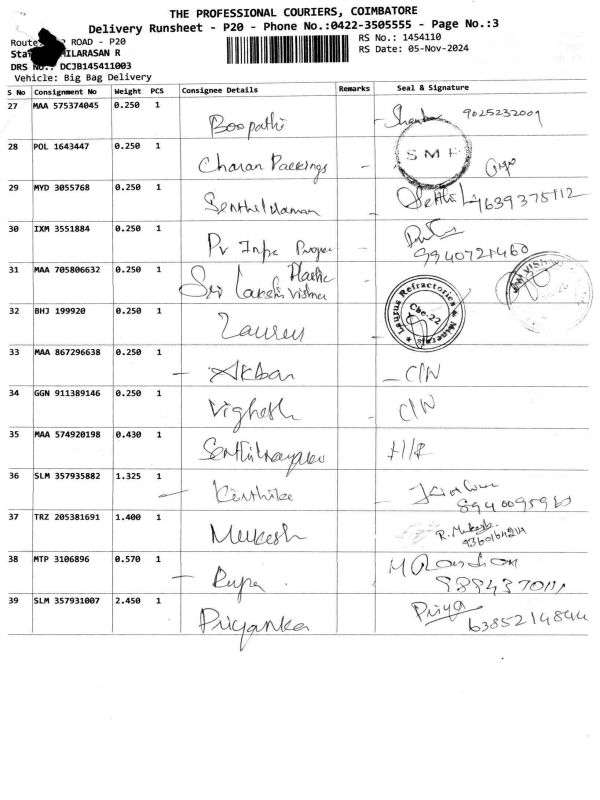 THE PROFESSIONAL COURIERS, COIMBATORE
Delivery Runsheet - P20 - Phone No.:0422-3505555 - Page No.:3
Route ROAD - P20
RS No.: 1454110
Sta HILARASAN R
RS Date: 05-Nov-2024
DRS No.: DCJB145411003
Vehicle: Big Bag Delivery
S No Consignment No Weight PCS Consignee Details Remarks Seal & Signature
27 MAA 575374045 0.250 1 Boopathi 9025232009
28 POL 1643447 0.250 1 Charan Packings SMF
29 MYD 3055768 0.250 1 Senthil 9639375112
30 IXM 3551884 0.250 1 Pv Infra 9940721460
31 MAA 705806632 0.250 1 Sri Lakshmi Vishnu Plastic
32 BHJ 199920 0.250 1 Laurus Laurus Refractories & Minerals Cbe-22
33 MAA 867296638 0.250 1 Akbar C/N
34 GGN 911389146 0.250 1 Vighesh C/N
35 MAA 574920198 0.430 1 H/R
36 SLM 357935882 1.325 1 Kirthika
37 TRZ 205381691 1.400 1 Mukesh R. Mukesh
38 MTP 3106896 0.570 1 Rupa
39 SLM 357931007 2.450 1 Priyanka Priya 6385214844